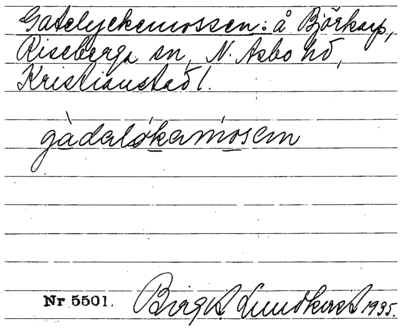 Gatelyckemossen: å Björkarp,
Riseberga sn, N. Åsbo hd,
Kristianstad l.
gàdalókamosem
Nr 5501. Birgit Lundkvist 1935.